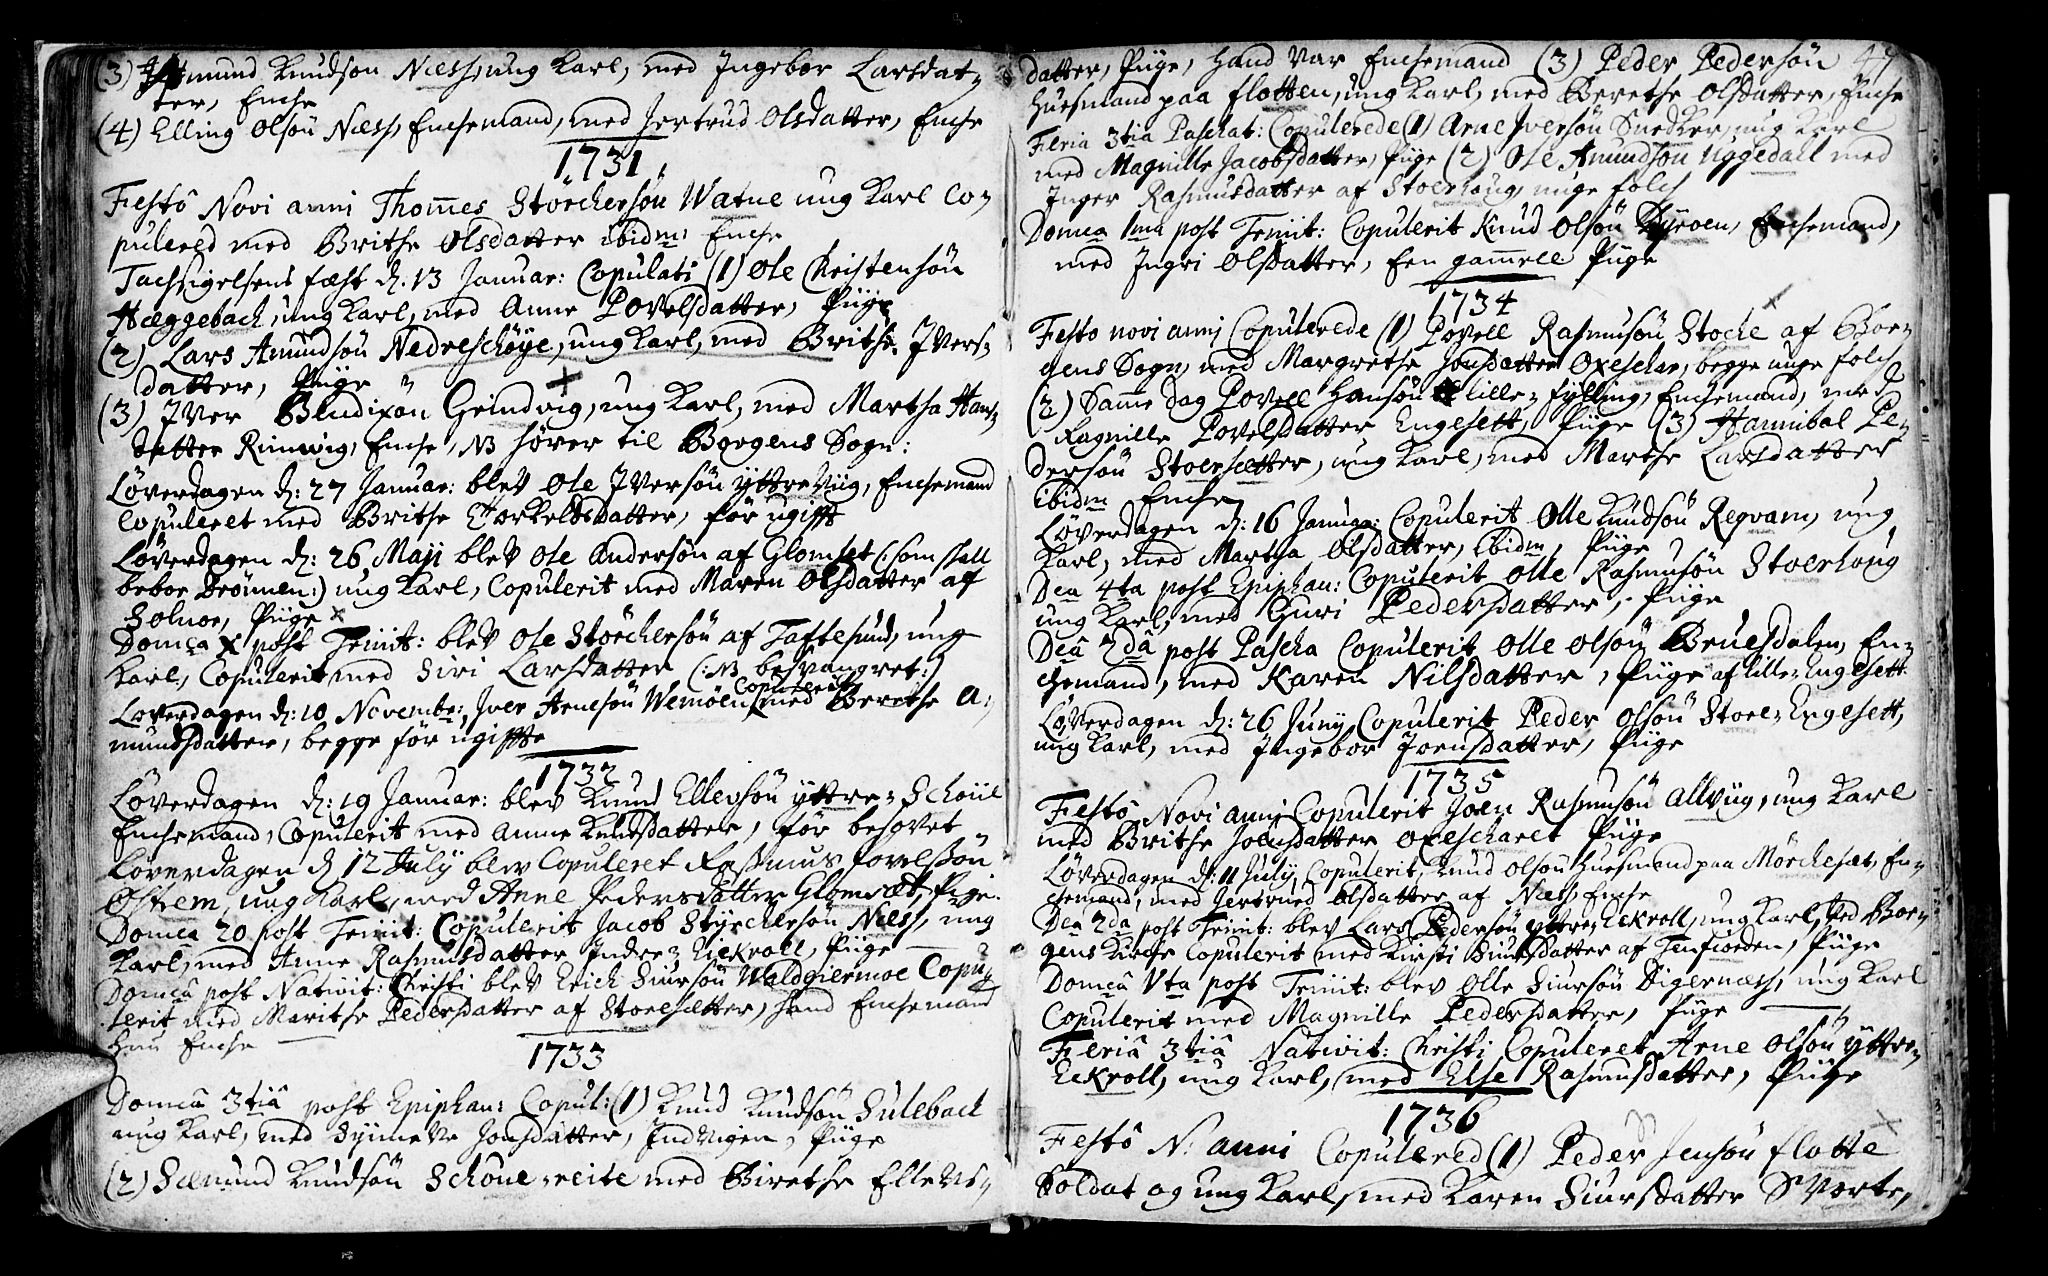 (3) Amund Knudsøn Næss, ung Karl, med Ingebor Larsdat-
ter, Encke
(4) Elling Olsøn Næss, Enckemand, med Jertrud Olsdatter, Encke
1731
Festô Novi anni Thomes Störchersön Watne ung Karl Co-
pulered med Brithe Olsdatter ibidm: Encke
Tachsigelsens fæst d. 13 Januar: Copulati (1) Ole Christensön
Hæggebach, ung Karl, med Anne Povelsdatter, Piige
(2) Lars Amundsön Nedreschöye, ung Karl, med Brithe Ivers-
datter, Piige
(3) Iver Bendixön Grindvig, ung Karl, med Martha Hans-
datter Rimvig, Encke, NB hörer til Borgens Sogn:
Löverdagen d: 27 Januar: blev Ole Iversön yttre Viig, Enckemand
Copuleret med Brithe Torkeldsdatter, för ugifft
Löverdagen d: 26 Maji blev Ole Andersön af Glomset (: som skall
beboe Brönnen:) ung Karl, Copulerit med Maren Olsdatter af
Solnor, Piige
Domca X post Trinit: blev Ole Störchersön af Taftesund, ung
Karl, Copulerit med Siri Larsdatter (: NB besvangret:)
Loverdagen d: 10 Novembr: Iver Arnesön Wemöen Copulerit med Berethe A-
mundsdatter, begge för ugiffte
1732
Löverdagen d: 19 Januar: blev Knud Ellersön yttre-Schoue
Enckemand, Copulerit med Anne Knudsdatter, för besovet
Loverdagen d 12 July blev Copuleret Rasmus Povelsön
Østrem, ung Karl, med Anne Pedersdatter Glomsæt, Pige.
Domca 20 post Trinit: Copulerit Jacob Styrchersön Næss, ung
Karl, med Anne Rasmusdatter Indre-Eickroll, Piige
Domcâ post Nativit: Christi blev Erich Siursön Waldgiermoe Copu-
lerit med Marithe Pedersdatter af Storesætter, hand Enckemand
hun Encke
1733
Domcâ 3tiâ post Epiphan: Copul: (1) Knud Knudsön Sulebach
ung Karl, med Syneve Jonsdatter, Indvigen, Piige
(2) Sæmund Knudsön Schouereite med Birethe Ellevs-
datter, Piige, hand var Enckemand (3) Peder Pedersön 49
Huusmand paa flotten, ung Karl, med Berethe Olsdatter, Encke
Feria 3tiâ Paschat: Copulerede (1) Arne Iversön Snedker, ung Karl
med Magnille Jacobsdatter, Piige (2) Ole Amundsön Uggedall med
Inger Rasmusdatter af Stoerhoug, unge folck
Domca 1ma post Trinit: Copulerit Knud Olsön Dyröen, Enckemand,
med Ingri Olsdatter, Een gammell Piige
1734
Festo novi anni Copulerede (1) Povell Rasmusön Stocke af Bor-
gens Sogn, med Margrethe Jonsdatter Oxeschar, begge unge folck
(2) Samme dag Povell Hansön lille-fylling, Enckemand, med
Ragnille Povelsdatter Engesett, Piige (3) Hannibal Pe-
dersön Stoersætter, ung Karl, med Marthe Larsdatter
ibidm Encke
Löverdagen d: 16 Januar: Copulerit Olle Knudsön Regvam, ung
Karl, med Martha Olsdatter, ibidm, Piige
Dca 4ta post Epiphan: Copulerit Olle Rasmusön Stoerhoug
ung Karl, med Guri Pedersdatter, Piige
Dcâ 2dâ post Pascha Copulerit Olle Olsön Bruesdalen, En-
ckemand, med Karen Nilsdatter, Piige af lille-Engesett
Löverdagen d: 26 Junij Copulerit Peder Olsön Store-Engesett,
ung Karl, med Ingebor Joensdatter, Piige
1735
Festô Novi anni Copulerit Joen Rasmusön Allviig, ung Karl
med Brithe Jolensdatter Oxescharet Piige
Löverdagen d: 11 July Copulerit Knud Olsön Huusmand paa Mörchesæt, En-
ckemand, med Jertrued Olsdatter af Næss Encke
Dca 2da post Trinit: blev Lars Pedersön yttre-Eickroll, ung Karl, ved Bor-
gens Kirche Copulerit med Kirsti Siursdatter af Tenfiorden, Piige
Domcâ Vta post Trinit: blev Olle Siursön Digernæss, ung Karl
Copulerit med Magnille Pedersdatter, Piige
Feriâ 3tiâ Nativit: Christi Copuleret Arne Olsön Yttre-
Eckroll, ung Karl, med Else Rasmusdatter, Piige
1736
Festô N: anni Copulered (1) Peder Jensön flotte
Soldat og ung Karl, med Karen Siursdatter Svorte,